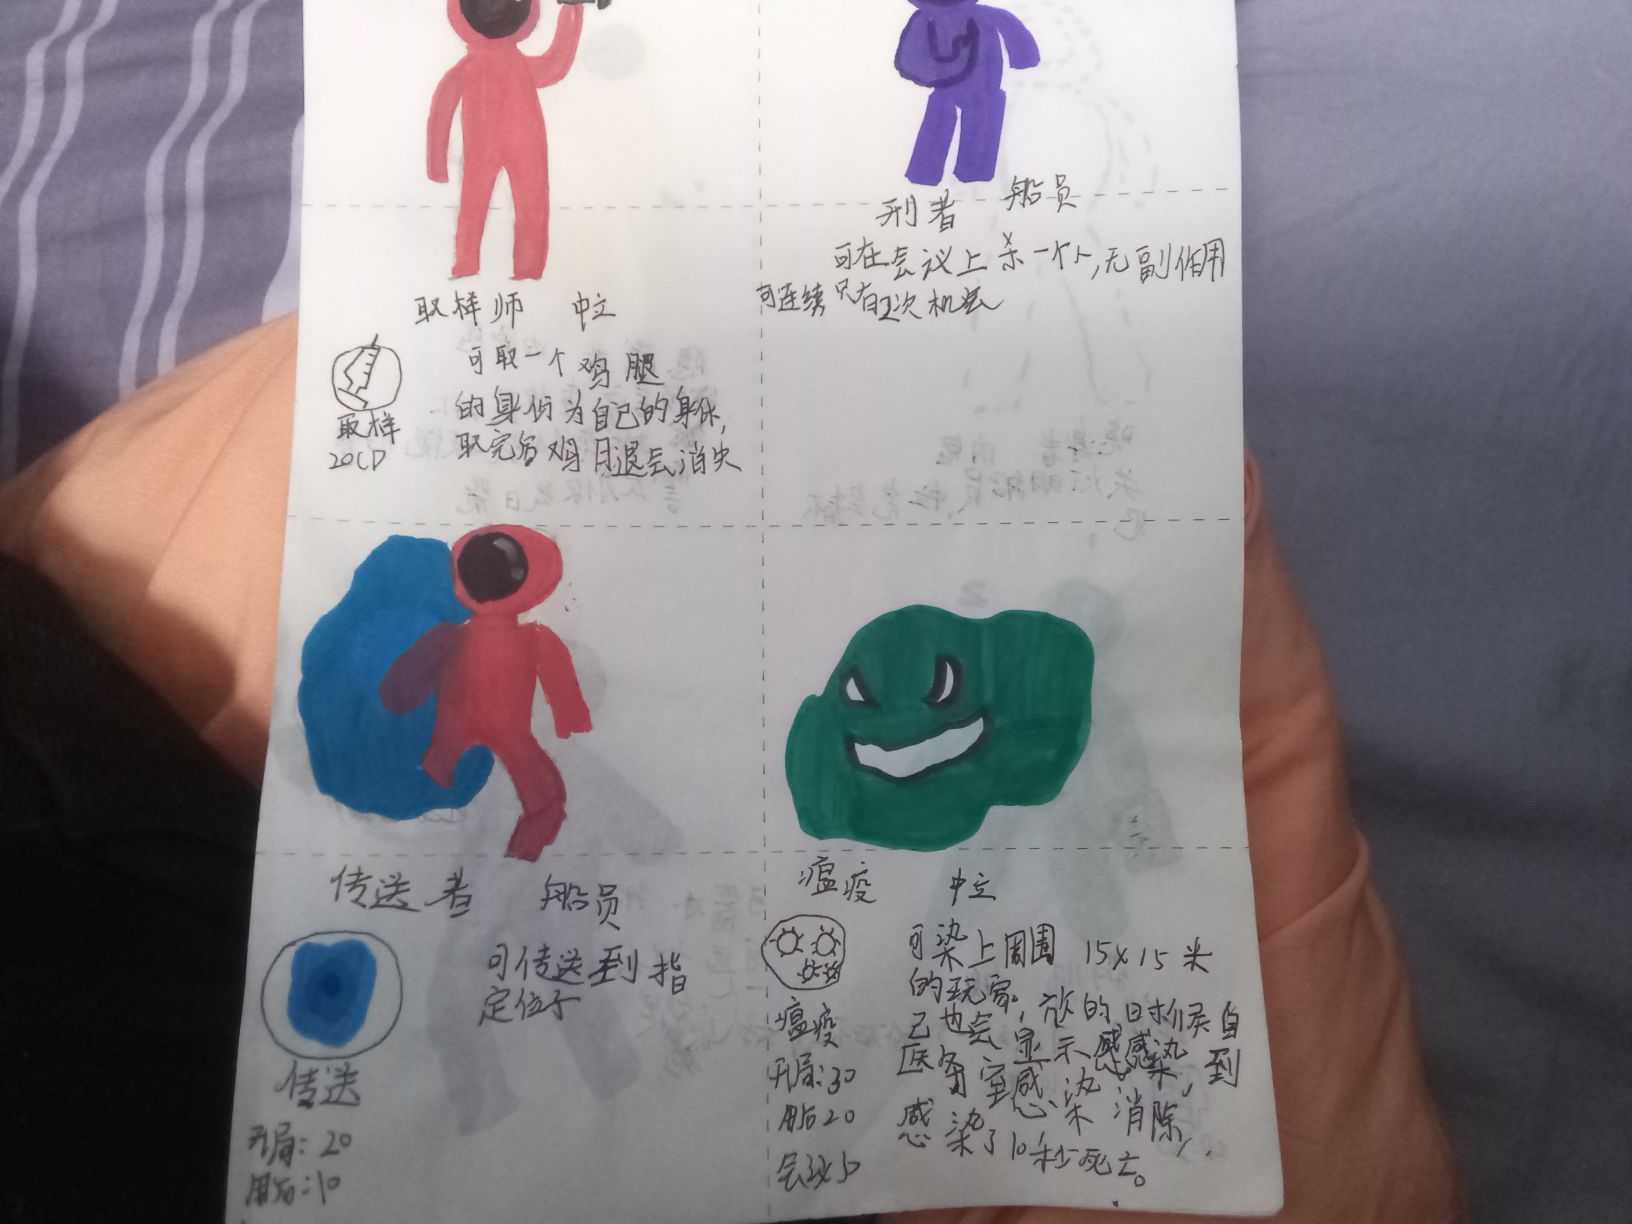 刑者 船员
可在会议上杀一个人,无副作用
可连续只有2次机会
取样师 中立
可取一个鸡腿
的身份为自己的身体,
取完后鸡腿会消失
取样
20CD
传送者 船员
可传送到指
定位于
传送
开局:20
用后:10
瘟疫 中立
可染上周围 15×15米
的玩家,放的时候自
己也会显示感感染,到
医务室感染消除,
感染了10秒死亡。
瘟疫
开局:30
用后20
会议5